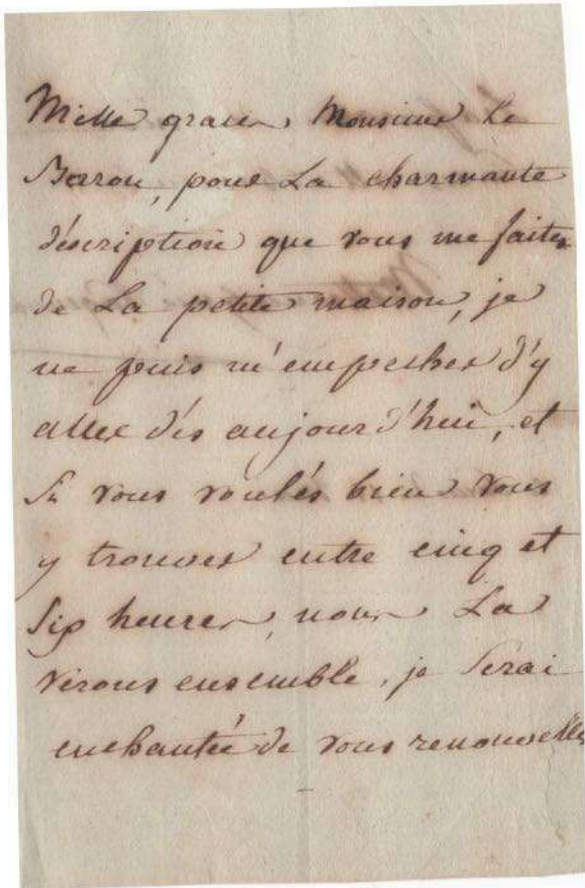 Mille graces Monsieur Le
Barron, pour La charmante
déscription que vous me faites
de La petite maison, je
ne puis m'empecher d'y
aller dés aujourd'hui, et
Si vous voulés bien vous
y trouver entre cinq et
Six heures, nous La
verons ensemble, je Serai
enchantée de vous renouveller